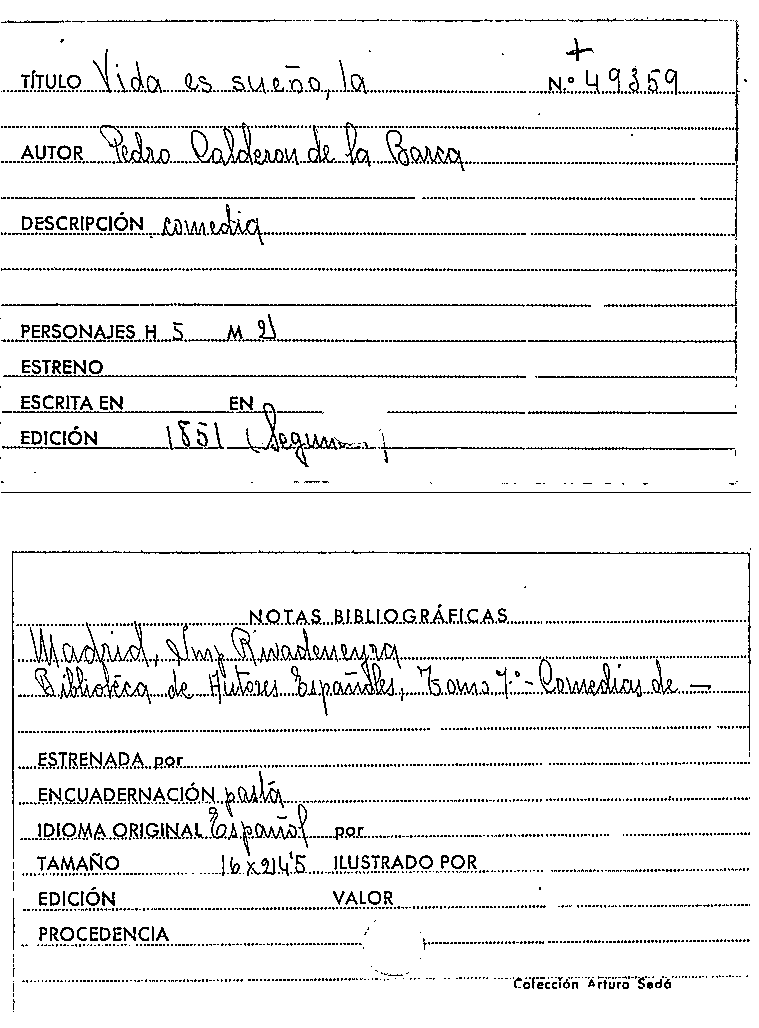 +
TÍTULO Vida es sueño, la N.º 49359
AUTOR Pedro Calderon de la Barca
DESCRIPCIÓN comedia
PERSONAJES H 5 M 2
ESTRENO
ESCRITA EN EN
EDICIÓN 1851 (Segun )
NOTAS BIBLIOGRÁFICAS
Madrid, Imp Rivadeneyra
Biblioteca de Autores Españoles, Tomo 7.º - Comedias de —
ESTRENADA por
ENCUADERNACIÓN pasta
IDIOMA ORIGINAL Español por
TAMAÑO 16 x 24'5 ILUSTRADO POR
EDICIÓN VALOR
PROCEDENCIA
Colección Arturo Sedó